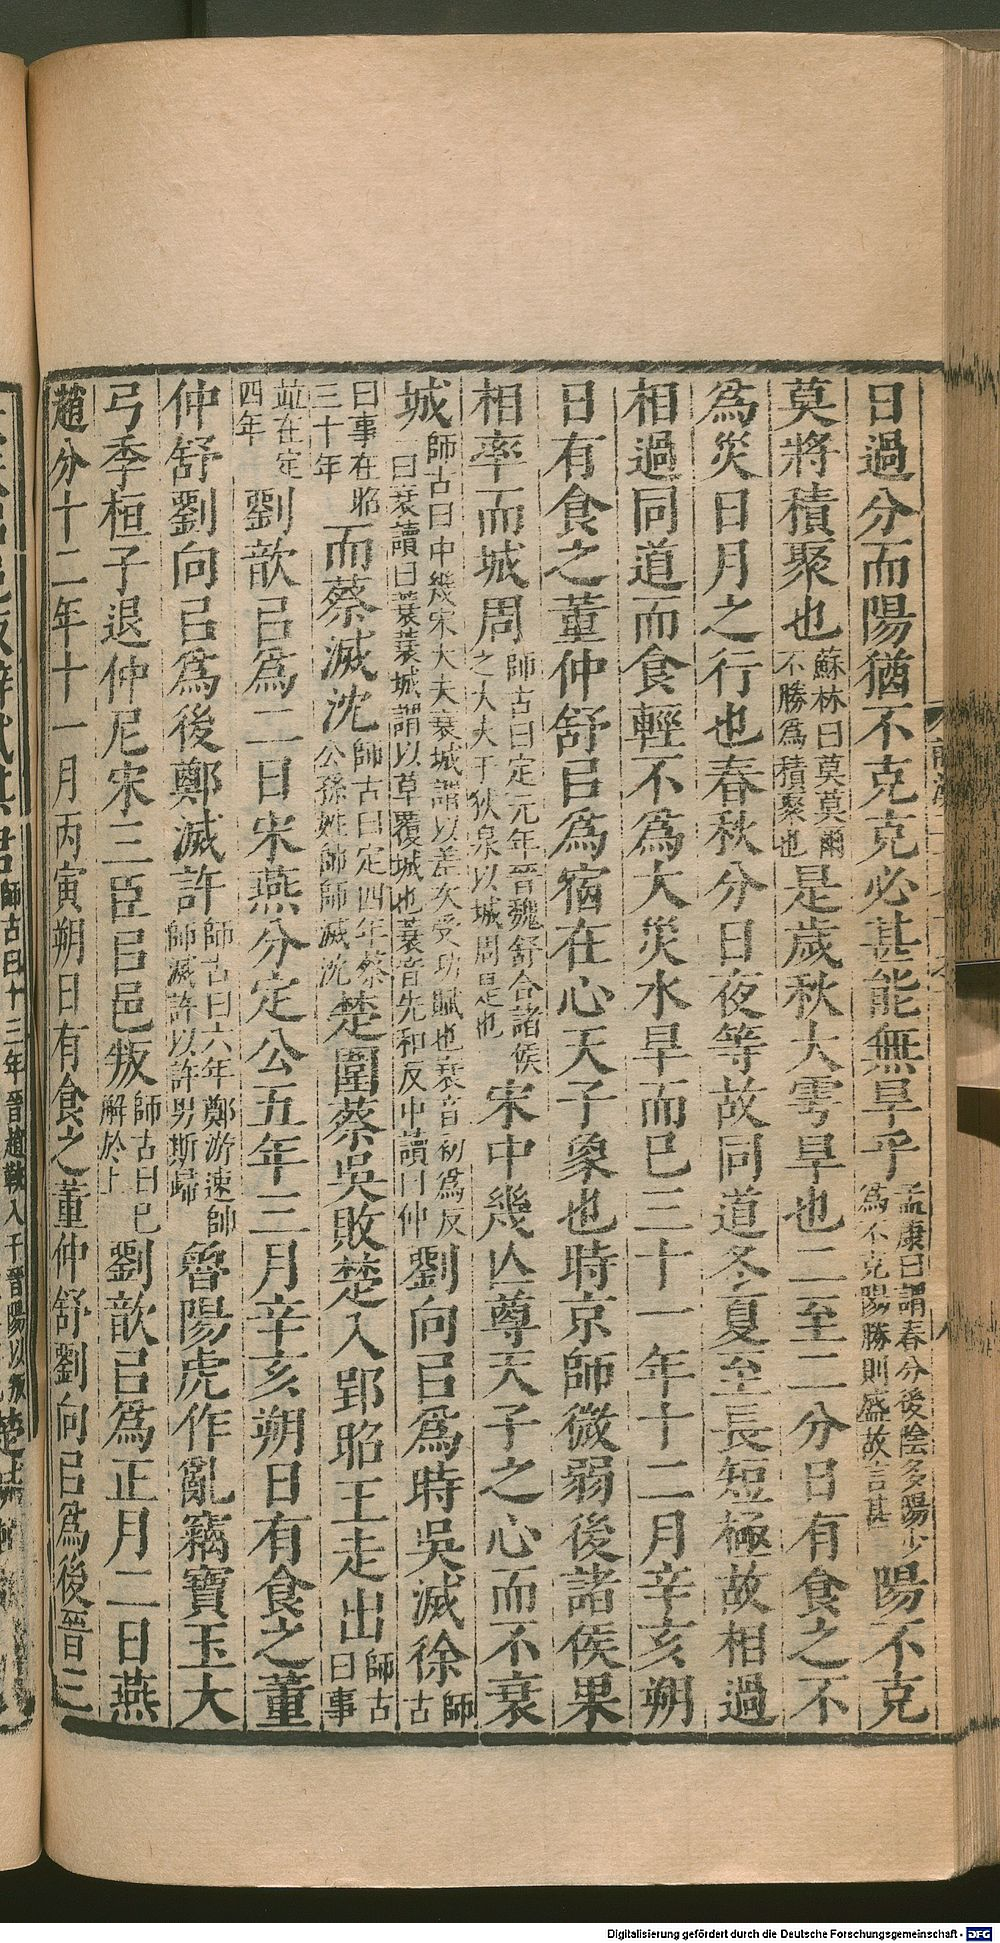 日過分而陽猶不克克必甚能無旱乎孟康曰謂春分後陰多陽少爲不克陽勝則盛故言甚陽不克
莫將積聚也蘇林曰莫莫爾不勝爲積聚也是歲秋大雩旱也二至二分日有食之不
爲災日月之行也春秋分日夜等故同道冬夏至長短極故相過
相過同道而食輕不爲大災水旱而已三十一年十二月辛亥朔
日有食之董仲舒㠯爲宿在心天子象也時京師微弱後諸侯果
相率而城周師古曰定元年晉魏舒合諸侯之大夫于狄泉以城周是也宋中幾亾尊天子之心而不衰
城師古曰中幾宋大夫衰城謂以差次受功賦也衰音初爲反一曰衰讀曰蓑蓑城謂以草覆城也蓑音先和反中讀曰仲劉向㠯爲時吳滅徐師古
曰事在昭三十年而蔡滅沈師古曰定四年蔡公孫姓帥師滅沈楚圍蔡吳敗楚入郢昭王走出師古曰事
竝在定四年劉歆㠯爲二日宋燕分定公五年三月辛亥朔日有食之董
仲舒劉向㠯爲後鄭滅許師古曰六年鄭游速帥師滅許以許男斯歸魯陽虎作亂竊寶玉大
弓季桓子退仲尼宋三臣㠯邑叛師古曰已解於上劉歆㠯爲正月二日燕
趙分十二年十一月丙寅朔日有食之董仲舒劉向㠯爲後晉三
師古曰十三年晉趙鞅入于晉陽以叛
Digitalisierung gefördert durch die Deutsche Forschungsgemeinschaft - DFG